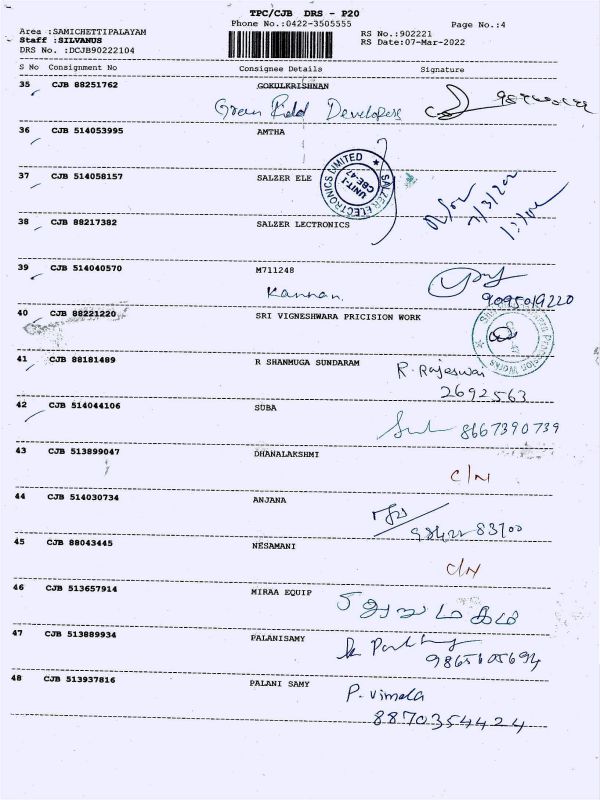 TPC/CJB DRS - P20
Phone No.:0422-3505555
Page No.:4
Area :SAMICHETTIPALAYAM
Staff :SILVANUS
DRS No. :DCJB90222104
RS No.:902221
RS Date:07-Mar-2022
S No Consignment No Consignee Details Signature
35 CJB 88251762 GOKULKRISHNAN
Green Field Developers
36 CJB 514053995 AMTHA
37 CJB 514058157 SALZER ELE
SALZER ELECTRONICS LIMITED
UNIT-I
CBE-47
38 CJB 88217382 SALZER LECTRONICS
39 CJB 514040570 M711248
Kannan.
9095019220
40 CJB 88221220 SRI VIGNESHWARA PRICISION WORK
41 CJB 88181489 R SHANMUGA SUNDARAM
R. Rajeswari
2692563
42 CJB 514044106 SUBA
8667390739
43 CJB 513899047 DHANALAKSHMI
C/N
44 CJB 514030734 ANJANA
45 CJB 88043445 NESAMANI
C/N
46 CJB 513657914 MIRAA EQUIP
47 CJB 513889934 PALANISAMY
9865605694
48 CJB 513937816 PALANI SAMY
P. Vimala
8870354424